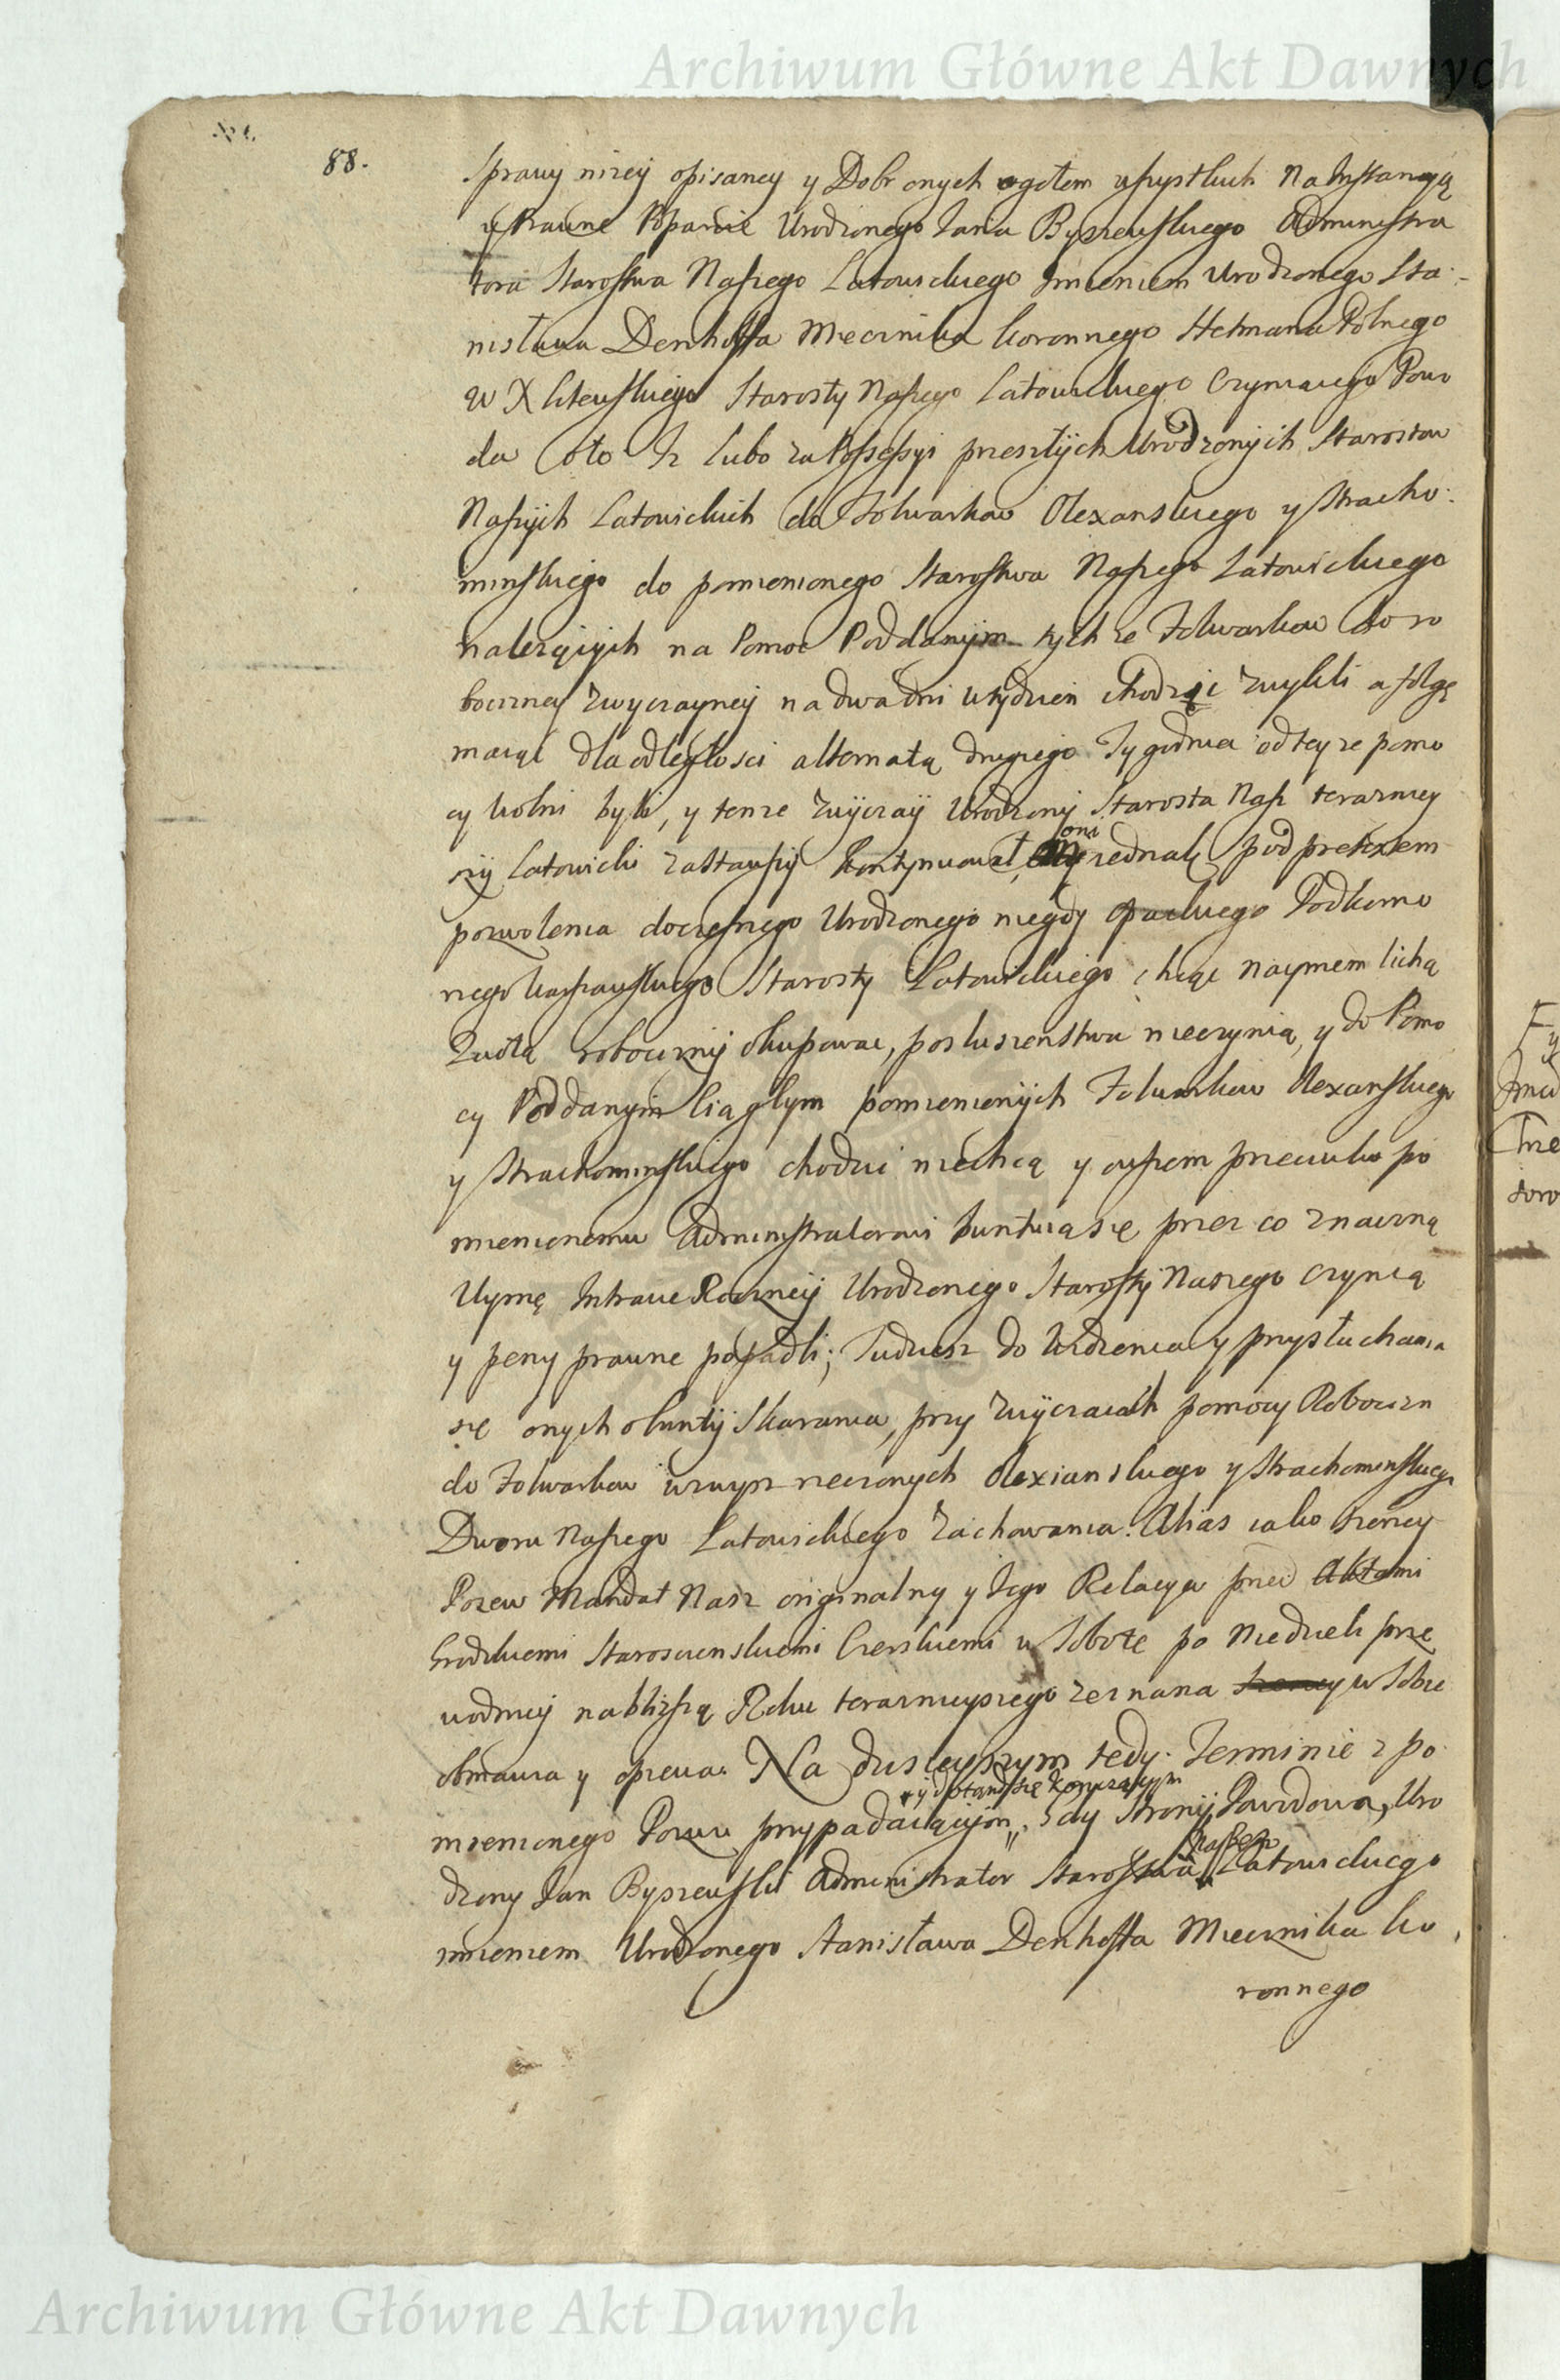 Archiwum Główne Akt Dawnych
88.
Sprawy nizey opisaney y Dobr onych ogołem wszystkich Na Instancyą
y Prawne Poparcie Urodzonego Jana Byszewskiego Administra
tora Starostwa Naszego Latowickiego Imieniem Urodzonego Sta-
nisława Denhoffa Miecznika Koronnego Hetmana Polnego
W X Litewskiego Starosty Naszego Latowickiego Czyniącego Powo
da Oto Iz lubo za Possessyi przeszłych Urodzonych Starostow
Naszych Latowickich do Folwarkow Olexanskiego y Stracho-
minskiego do pomienionego Starostwa Naszego Latowickiego
nalezących na Pomoc Poddanym tych ze Folwarkow do ro
boczney zwyczayney na dwa dni w tydzien chodzic zwykli a folgę
maiąc dla odległosci alternatą drugiego Tygodnia od tey ze pomo
cy wolni byli, y tenze zwyczay Urodzony Starosta Nasz terazniey
szy Latowicki zastawszy kontynuował, oni iednak pod pretextem
pozwolenia doczesnego Urodzonego niegdy Opackiego Podkomo
rzego Warszawskiego Starosty Latowickiego chcąc naymem lichą
robocizny okupowac, posłuszenstwa nieczynią, y do Pomo
cy Poddanym Ciągłym pomienionych Folwarkow Olexanskiego
y Strachominskiego chodzic niechcą y owszem przeciwko po
mienionemu Administratorowi buntuią się przez co znaczną
Uymę Intracie Roczney Urodzonego Starosty Naszego czynią
y peny prawne popadli; Tudziesz do Widzenia y przysłuchania
się onych o bunty Skarania, przy zwyczaiach pomocy Roboczn
do Folwarkow wzwysz rzeczonych Olexianskiego y Strachominskiego
Dworu Naszego Latowickiego zachowania. Alias iako szerzey
Pozew Mandat Nasz originalny y Iego Relacya przed Aktami
Grodzkiemi Starosscienskiemi Czerskiemi w Sobotę po Niedzieli prze
wodniey nabliszszą Roku teraznieyszego zeznana szerzey w Sobie
obmawia y opiewa. Na dzisieyszym tedy Terminie z po
y dotąd się konczącym
mienionego Pozwu przypadaiącym. Gdy Strony Powodowa, Uro
Naszego
dzony Jan Byszewski Administrator Starostwa Latowickiego
imieniem Urodzonego Stanisława Denhoffa Miecznika Ko
ronnego
Archiwum Główne Akt Dawnych